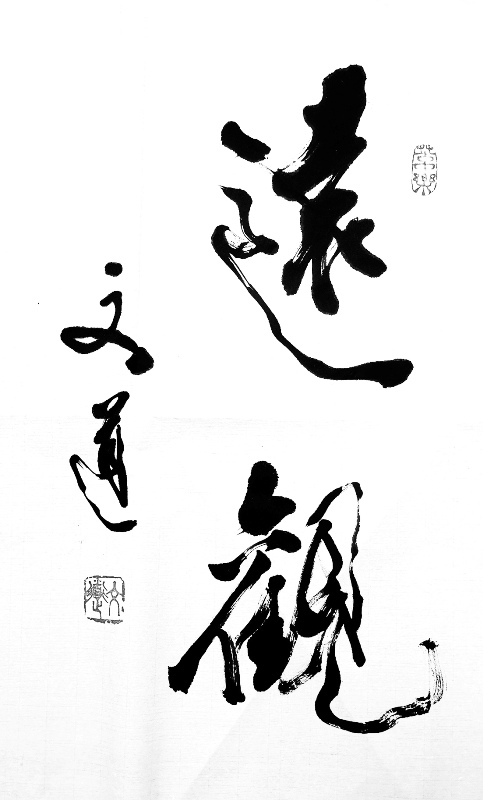 遠觀
文道